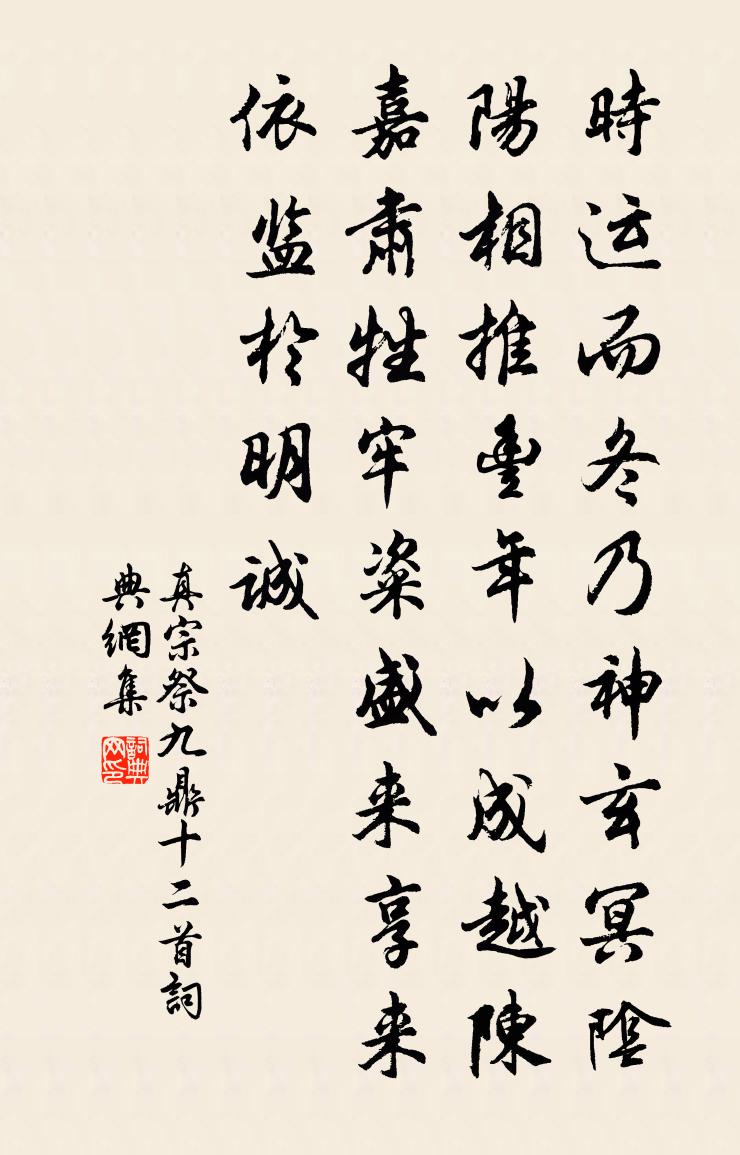 時运而冬乃神玄冥陰
陽相推豊年以成越陳
嘉肅牲牢粢盛来享来
依监於明诚
真宗祭九鼎十二首詞
典網集
詞典網印